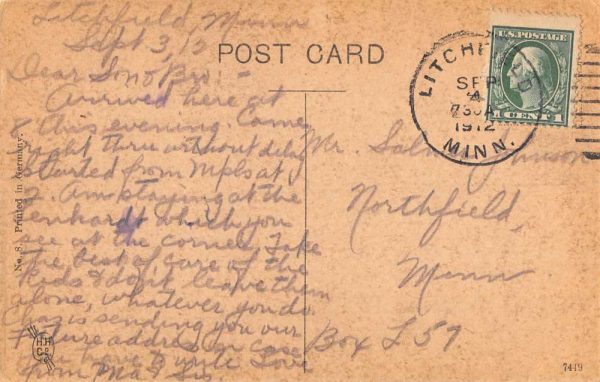 Litchfield, Minn
Sept 3, 12
POST CARD
Dear Son & Bro: -
Arrived here at
8 this evening. Came
right thru without delay
Started from Mpls at
2. Am staying at the
Lenhardt which you
see at the corner. Take
the best of care of the
kids & don't leave them
alone, whatever you do.
Chas is sending you our
Future address in case
you have to write Love
from Ma & Sis.
LITCHFIELD
SEP
4
730A
1912
MINN.
U.S. POSTAGE
1 CENT 1
Mr. Johnson
Northfield,
Minn
Box L 57.
No. 8. Printed in Germany.
H H
Co
7449